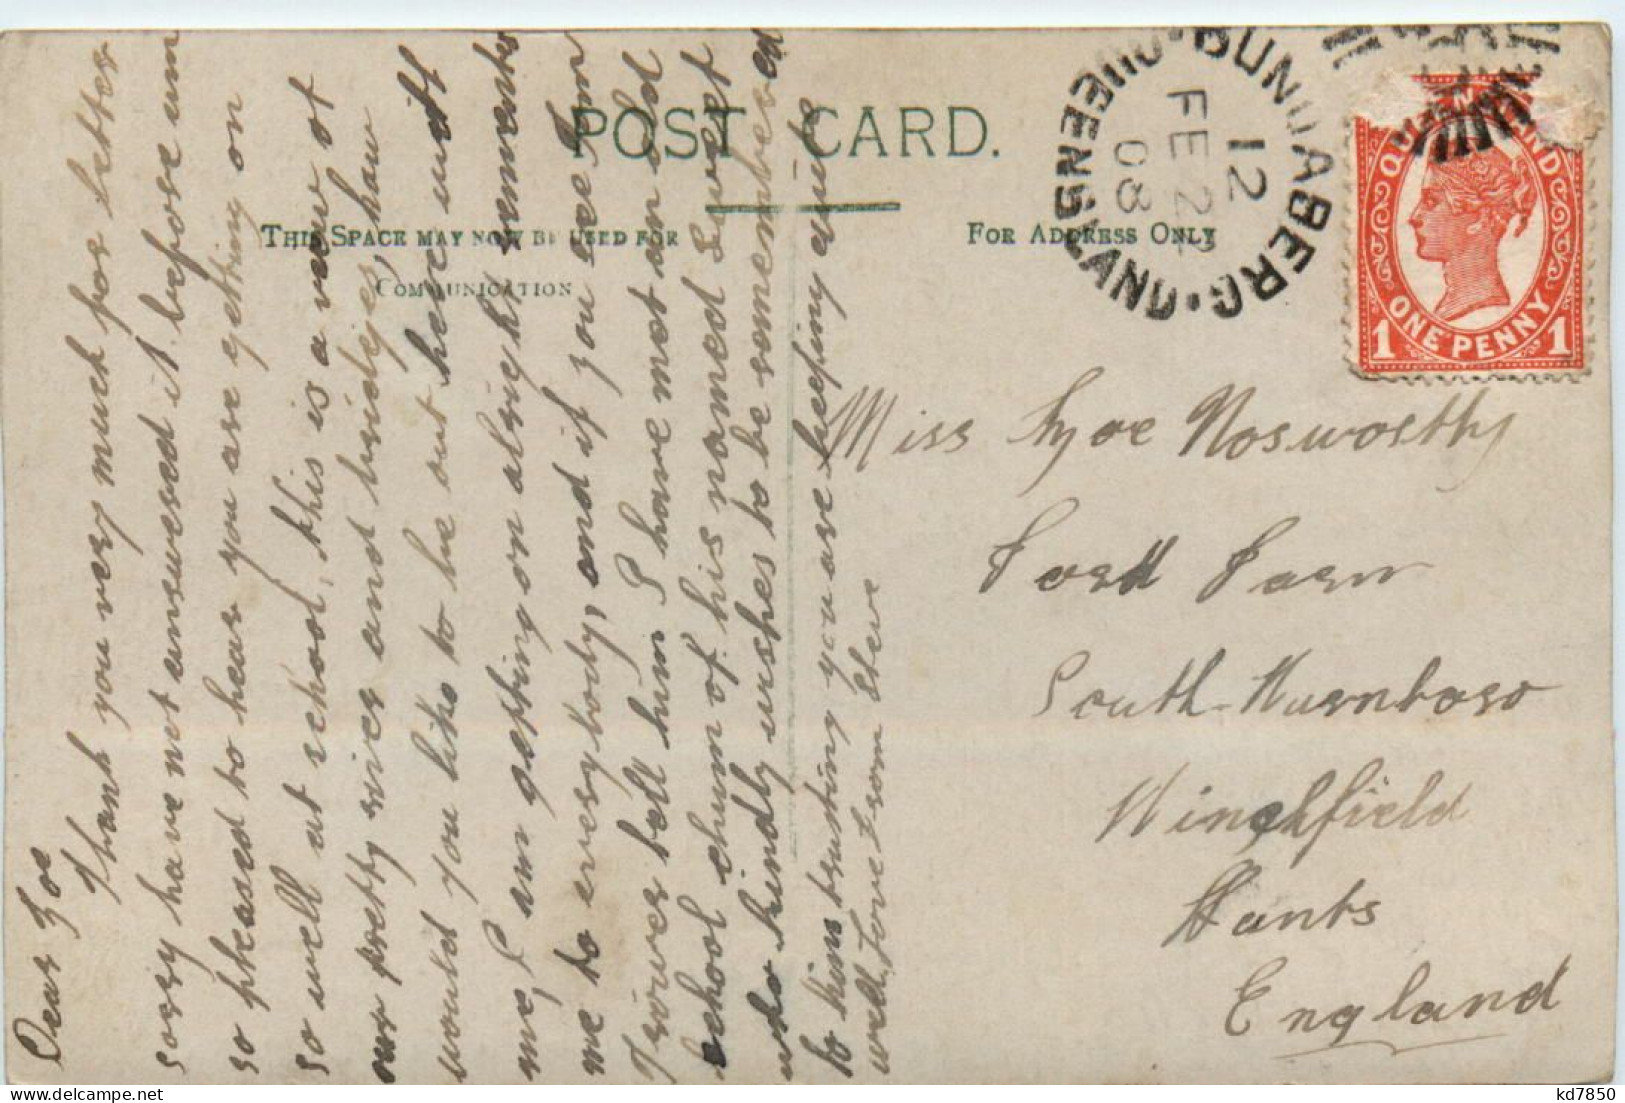 POST CARD.
THIS SPACE MAY NOW BE USED FOR
COMMUNICATION
FOR ADDRESS ONLY
BUNDABERG. QUEENSLAND.
12
FE 22
08
QUEENSLAND
1 ONE PENNY 1
Dear Zoe
Thank you very much for letter
sorry have not answered it before um
so pleased to hear you are getting on
so well at school, this is a view of
our pretty river and bridges, how
would you like to be out here with
me, I am getting on alright remember
me to everybody, and if you see
Trower tell him I have met an old
school chum of his named Sweet
who kindly wishes to be remembered
to him trusting you are keeping quite
well, love from Steve
Miss Nosworthy
Ford Farm
South Warnboro
Winchfield
Hants
England
kd7850